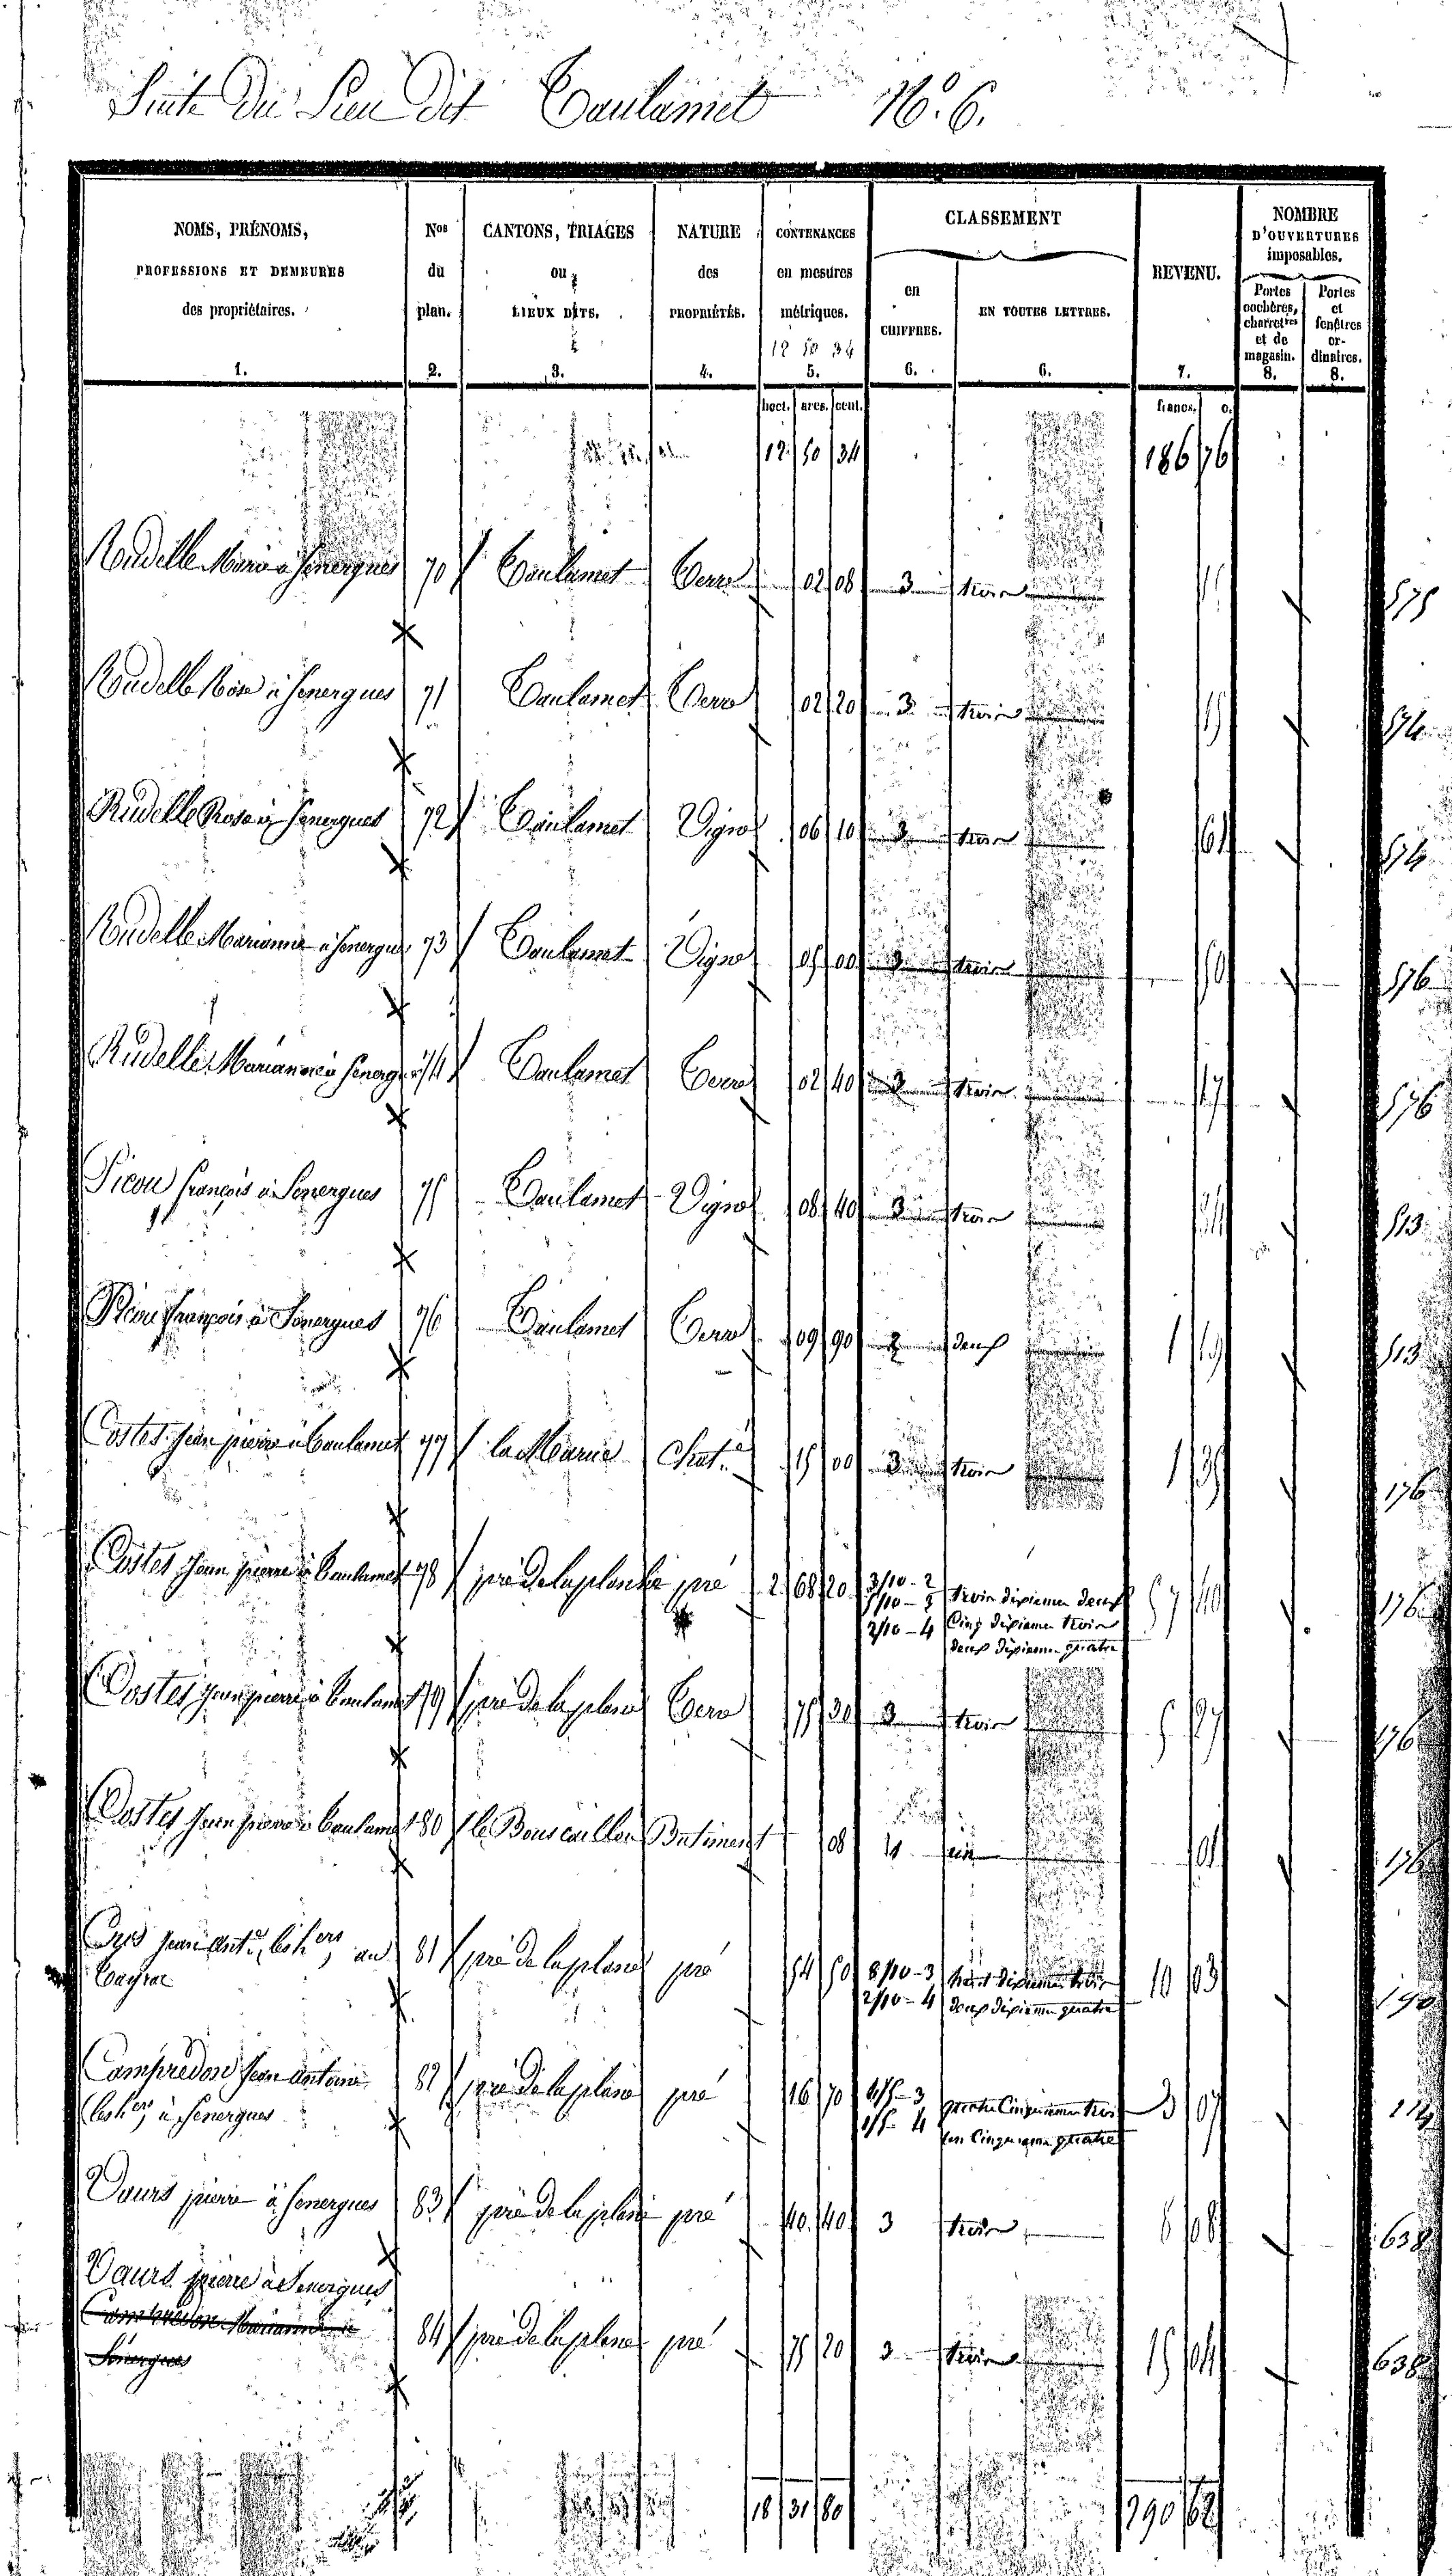 Suite Du Lieu Dit Caulamet N.º 6.
NOMS, PRÉNOMS,
PROFESSIONS ET DEMEURES
des propriétaires.
1.
Nos
du
plan.
2.
CANTONS, TRIAGES
ou
LIEUX DITS.
3.
NATURE
des
PROPRIÉTÉS.
4.
CONTENANCES
en mesures
métriques.
12 50 34
5.
CLASSEMENT
en
CHIFFRES.
6.
EN TOUTES LETTRES.
6.
REVENU.
7.
NOMBRE
D'OUVERTURES
imposables.
Portes
cochères,
charretres
et de
magasin.
8.
Portes
et
fenêtres
or-
dinaires.
8.
hect. ares. cent. francs. c.
12 50 34 186 76
Rudelle Marie à Senergues 70 Caulamet Terre 02 08 3 trois 575
Rudelle Rose à Senergues 71 Caulamet Terre 02 20 3 trois 15 574
Rudelle Rose à Senergues 72 Caulamet Vigne 06 10 3 trois 61 574
Rudelle Marianne à Senergues 73 Caulamet Vigne 05 00 3 trois 50 576
Rudelle Marianne à Senergues 74 Caulamet Terre 02 40 3 trois 17 576
Picou françois à Senergues 75 Caulamet Vigne 08 40 3 trois 84 513
Picou françois à Senergues 76 Caulamet Terre 09 90 2 deux 1 19 513
Costes Jean pierre à Caulamet 77 Chat. 15 00 3 trois 1 35 176
Costes Jean pierre à Caulamet 78 pré de la plane pré 2 68 20 3/10 - 2 trois dixieme deux 57 40 176
5/10 - 3 Cinq dixieme trois
2/10 - 4 deux dixieme quatre
Costes Jean pierre à Caulamet 79 pré de la plane Terre 75 30 3 trois 5 27 176
Costes Jean pierre à Caulamet 80 le Bouscaillou Batiment 08 1 un 01 176
Jean Ante, les hers, au 81 pré de la plane pré 54 50 8/10 - 3 huit dixieme trois 10 03 190
Cayrac 2/10 - 4 deux dixieme quatre
Campredon Jean Antoine 82 pré de la plane pré 16 70 4/5 - 3 quatre Cinquieme trois 3 07 114
les hers, à Senergues 1/5 - 4 un Cinquieme quatre
Vaurs pierre à Senergues 83 pré de la plane pré 40 40 3 trois 8 08 638
Vaurs pierre à Senergues
Campredon Marianne à 84 pré de la plane pré 75 20 3 trois 15 04 638
Senergues
18 31 80 290 62